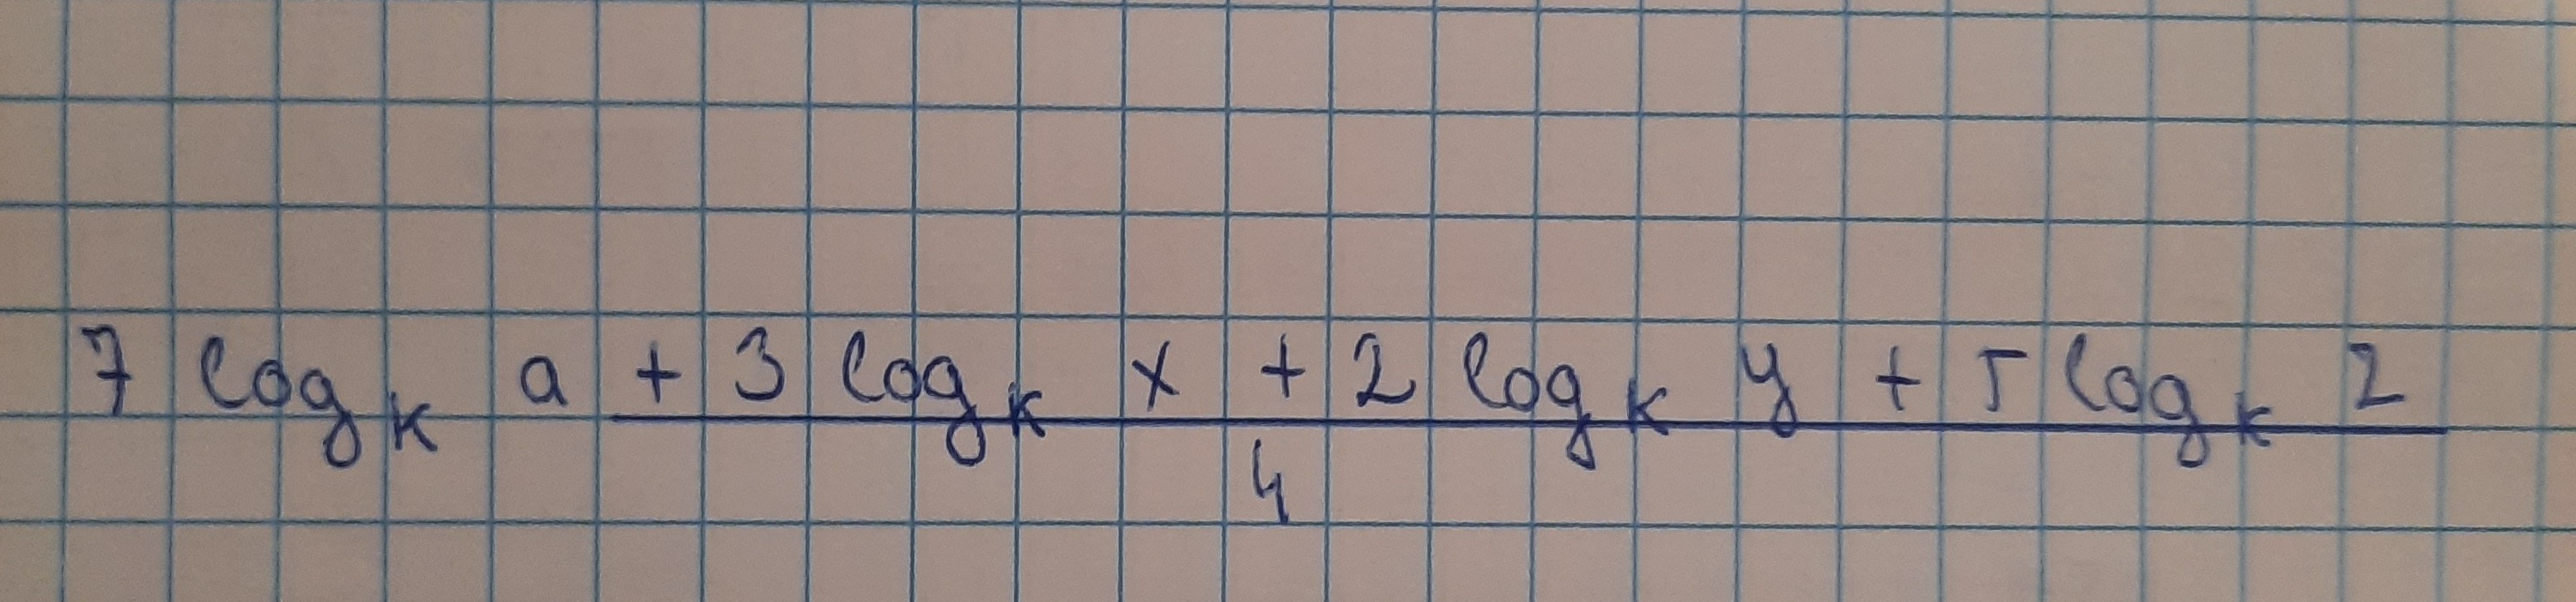 7 log_k a + 3 log_k x + 2 log_k y + 5 log_k 2
4